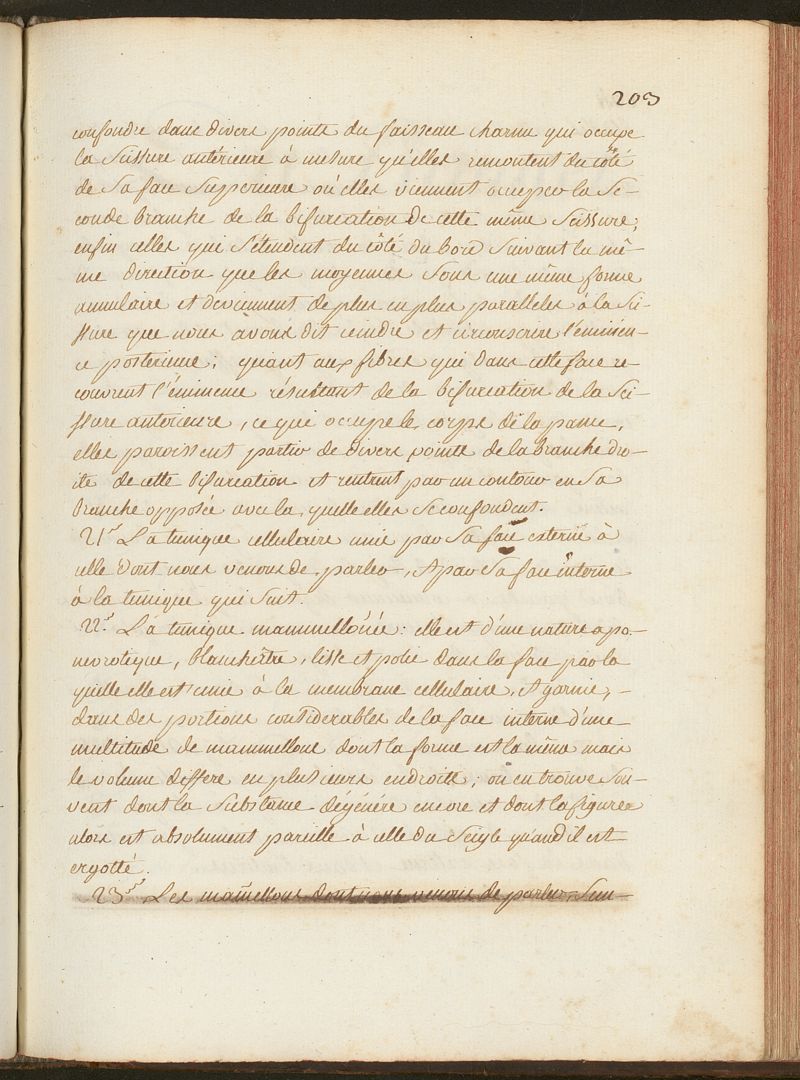 203
confondre dans divers points du faisseau charnu qui occupe
la Scissure antérieure à mesure qu'elles remontent du côté
de Sa face Superieure où elles viennent occuper la Se-
conde branche de la bifurcation de cette même Scissure;
enfin celles qui S'étendent du côté du bord Suivant la mê-
me direction que les moyennes Sous une même forme
annulaire et deviennent de plus en plus paralleles à la Sci-
ssure que nous avons dit ceindre et circonscrire l'éminen-
ce posterieure; quant aux fibres qui dans cette face re-
couvrent l'éminence résultant de la bifurcation de la Sci-
ssure anterieure, ce qui occupe le corps de la panse,
elles paroissent partir de divers points de la branche dro-
ite de cette bifurcation et rentrent par un contour en Sa
branche opposée avec la quelle elles Se confondent.
21° La tunique cellulaire unie par Sa face externe à
celle dont nous venons de parler, & par Sa face interne
à la tunique qui Suit.
22° La tunique mammellonée: elle est d'une nature apo-
nevrotique, blancheâtre, lisse et polie dans la face par la
quelle elle est unie à la membrane cellulaire, & garnie,
dans des portions considerables de la face interne d'une
multitude de mammellons dont la forme est la même mais
le volume differe en plusieurs endroits; on en trouve Sou-
vent dont la Substance dégénére encore et dont la figure
alors est absolument pareille à celle du Seigle quand il est
ergotté.
23° Les mamellons dont nous venons de parler, Sun-